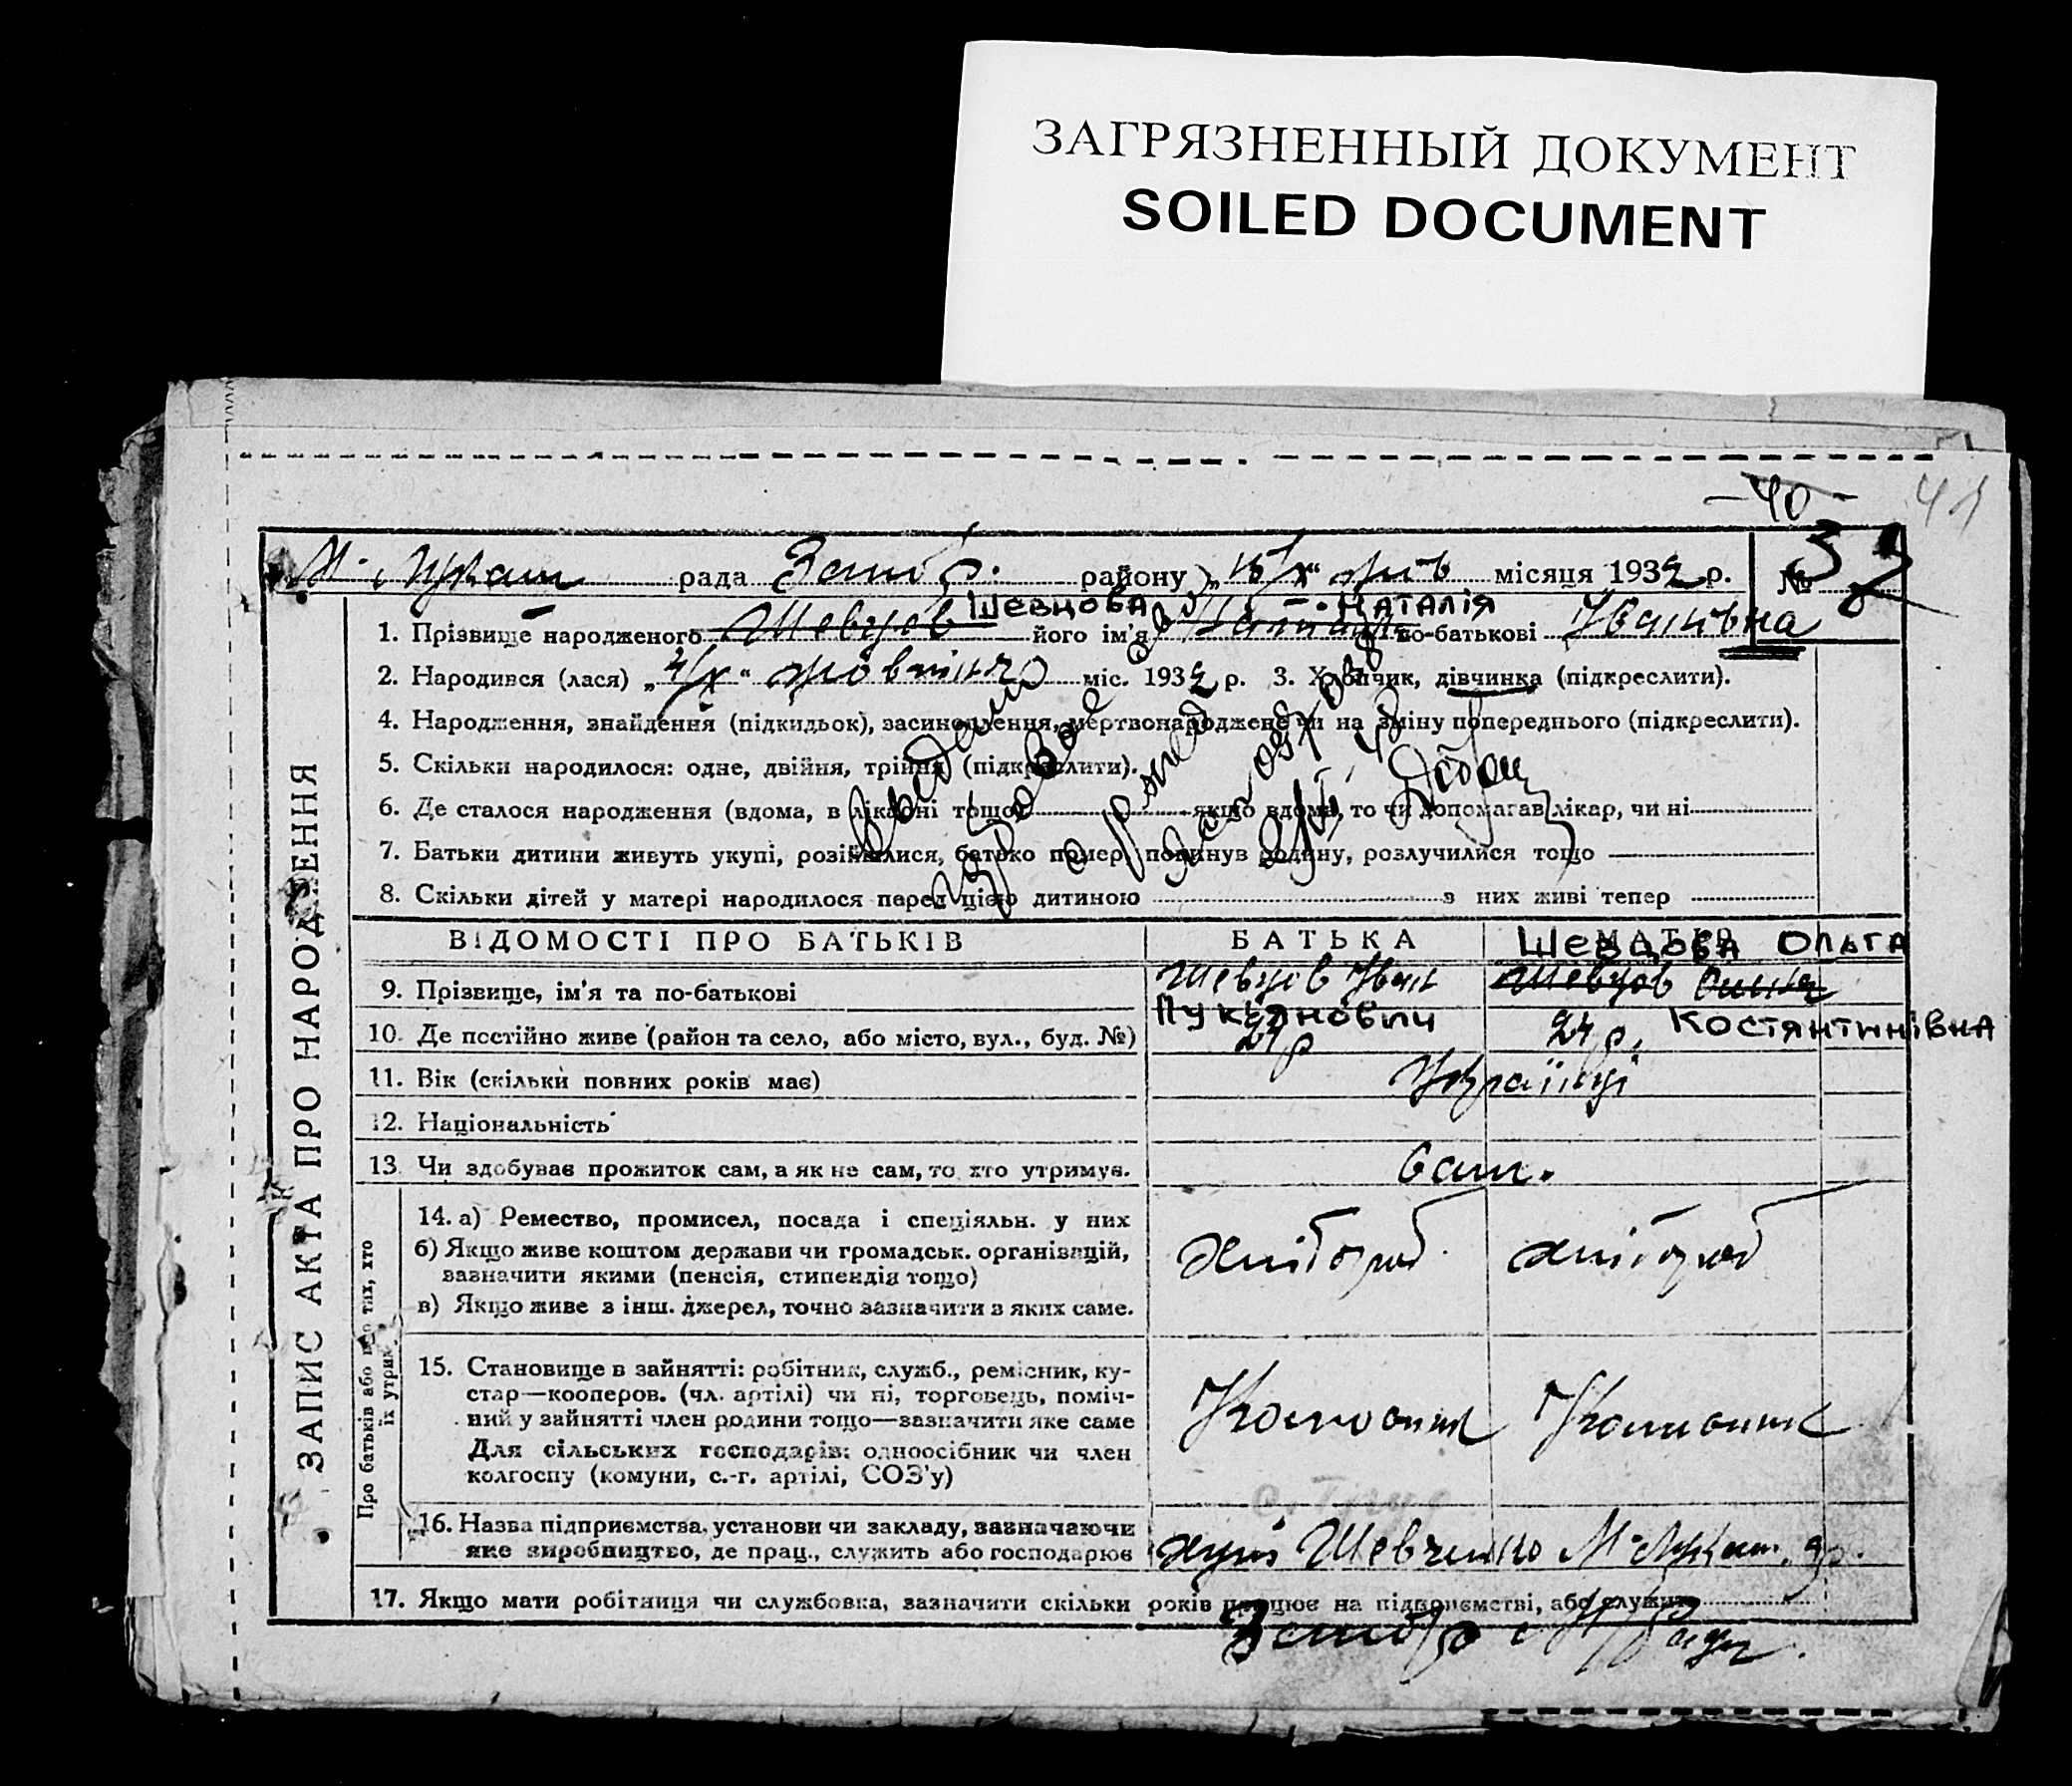 ЗАГРЯЗНЕННЫЙ ДОКУМЕНТ
SOILED DOCUMENT
-40-
рада району місяця 1932 р. №
ШЕВЦОВА НАТАЛІЯ
1. Прізвище народженого Шевцов його ім'я по-батькові Іванівна
2. Народився (лася) „4/X“ жовтня міс. 1932 р. 3. Хлопчик, дівчинка (підкреслити).
4. Народження, знайдення (підкидьок), засиновлення, мертвонароджене чи на зміну попереднього (підкреслити).
5. Скільки народилося: одне, двійня, трійня (підкреслити).
6. Де сталося народження (вдома, в лікарні тощо) якщо вдома, то чи допомагав лікар, чи ні
7. Батьки дитини живуть укупі, розійшлися, батько помер, покинув родину, розлучилися тощо
8. Скільки дітей у матері народилося перед цією дитиною з них живі тепер
ЗАПИС АКТА ПРО НАРОДЖЕННЯ
ВІДОМОСТІ ПРО БАТЬКІВ БАТЬКА МАТЕРІ
ШЕВЦОВА ОЛЬГА
9. Прізвище, ім'я та по-батькові Шевцов Іван Шевцов
ЛУК'ЯНОВИЧ КОСТЯНТИНІВНА
10. Де постійно живе (район та село, або місто, вул., буд. №) 24 р. 24 р.
11. Вік (скільки повних років має) Українці
12. Національність
13. Чи здобуває прожиток сам, а як не сам, то хто утримує. сам.
Про батьків або про тих, хто їх утрим.
14. а) Ремество, промисел, посада і спеціяльн. у них
б) Якщо живе коштом держави чи громадськ. організацій,
зазначити якими (пенсія, стипендія тощо)
хлібороб хлібороб
в) Якщо живе з інш. джерел, точно зазначити з яких саме.
15. Становище в зайнятті: робітник, служб., ремісник, ку-
стар—кооперов. (чл. артілі) чи ні, торговець, поміч-
ний у зайнятті член родини тощо—зазначити яке саме
Для сільських господарів: одноосібник чи член
колгоспу (комуни, с.-г. артілі, СОЗ'у)
16. Назва підприємства, установи чи закладу, зазначаючи
яке виробництво, де прац., служить або господарює Шевченко
17. Якщо мати робітниця чи службовка, зазначити скільки років працює на підприємстві, або служить